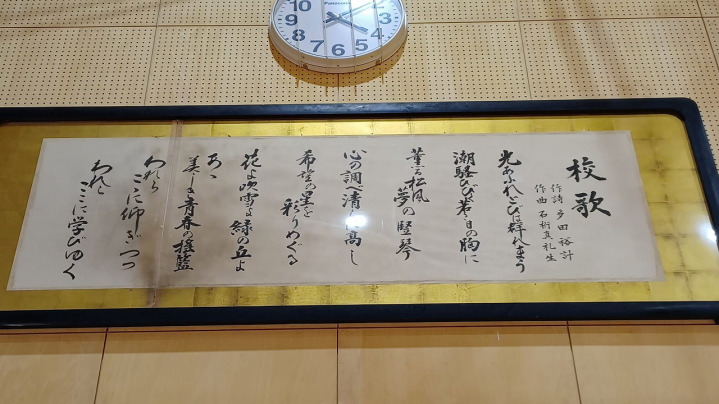 10
9
8
7
6
5
4
3
Panasonic
校歌
作詩 多田裕計
作曲 石桁真礼生
光あふれとびは群れまう
潮騒ひびけ若き日の胸に
薫る松風 夢の竪琴
心の調べ清しく高し
希望の星を 彩りめぐる
花よ吹雪よ緑の丘よ
あゝ
美しき青春の揺籃
われら ここに仰ぎつつ
われら ここに学びゆく